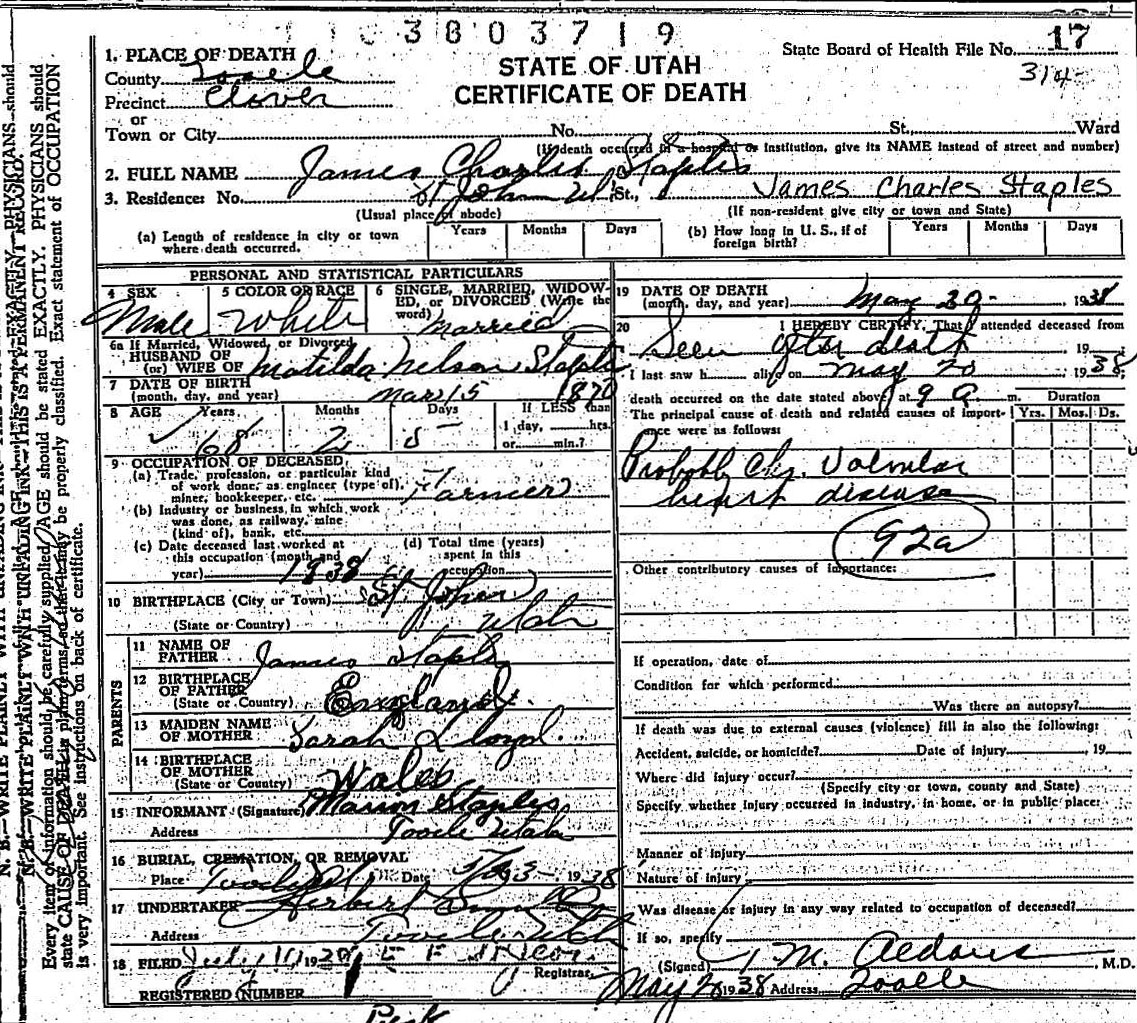 3803719
State Board of Health File No. 17
314
STATE OF UTAH
CERTIFICATE OF DEATH
1. PLACE OF DEATH
County Tooele
Precinct Clover
or
Town or City No. St., Ward
(If death occurred in a hospital or institution, give its NAME instead of street and number)
2. FULL NAME James Charles Staples
3. Residence: No. St John Ut St., James Charles Staples
(Usual place of abode) (If non-resident give city or town and State)
(a) Length of residence in city or town where death occurred. Years Months Days
(b) How long in U. S., if of foreign birth? Years Months Days
PERSONAL AND STATISTICAL PARTICULARS
4 SEX Male
5 COLOR OR RACE White
6 SINGLE, MARRIED, WIDOWED, or DIVORCED (Write the word) Married
6a If Married, Widowed, or Divorced
HUSBAND OF
(or) WIFE OF Matilda Nelson Staples
7 DATE OF BIRTH
(month, day, and year) Mar 15 1870
8 AGE Years Months Days If LESS than
68 2 5 1 day, hrs.
or min.?
9 OCCUPATION OF DECEASED
(a) Trade, profession, or particular kind
of work done, as engineer (type of),
miner, bookkeeper, etc. Farmer
(b) Industry or business, in which work
was done, as railway, mine
(kind of), bank, etc.
(c) Date deceased last worked at
this occupation (month and
year) 1938
(d) Total time (years)
spent in this
occupation
10 BIRTHPLACE (City or Town) St. John
(State or Country) Utah
PARENTS
11 NAME OF
FATHER James Staples
12 BIRTHPLACE
OF FATHER
(State or Country) England
13 MAIDEN NAME
OF MOTHER Sarah Lloyd
14 BIRTHPLACE
OF MOTHER
(State or Country) Wales
15 INFORMANT (Signature) Marion Staples
Address Tooele Utah
16 BURIAL, CREMATION, OR REMOVAL
Place Tooele Date 5/23 1938
17 UNDERTAKER Herbert
Address Tooele Utah
18 FILED July 10 19
Registrar
REGISTERED NUMBER 1
19 DATE OF DEATH
(month, day, and year) May 20 1938
20 I HEREBY CERTIFY, That I attended deceased from
Seen after death 19
I last saw h alive on May 20 1938
death occurred on the date stated above, at 9 a m.
The principal cause of death and related causes of importance were as follows:
Duration
Yrs. Mos. Ds.
Probably Chr. Valvular
heart disease
92a
Other contributory causes of importance:
If operation, date of
Condition for which performed
Was there an autopsy?
If death was due to external causes (violence) fill in also the following:
Accident, suicide, or homicide? Date of injury , 19
Where did injury occur?
(Specify city or town, county and State)
Specify whether injury occurred in industry, in home, or in public place:
Manner of injury
Nature of injury
Was disease or injury in any way related to occupation of deceased?
If so, specify
(Signed) M. Aldous , M.D.
May 1938 Address Tooele
N. B.—WRITE PLAINLY WITH UNFADING INK—THIS IS A PERMANENT RECORD.
Every item of information should be carefully supplied. AGE should be stated EXACTLY. PHYSICIANS should
state CAUSE OF DEATH in plain terms, so that it may be properly classified. Exact statement of OCCUPATION
is very important. See instructions on back of certificate.